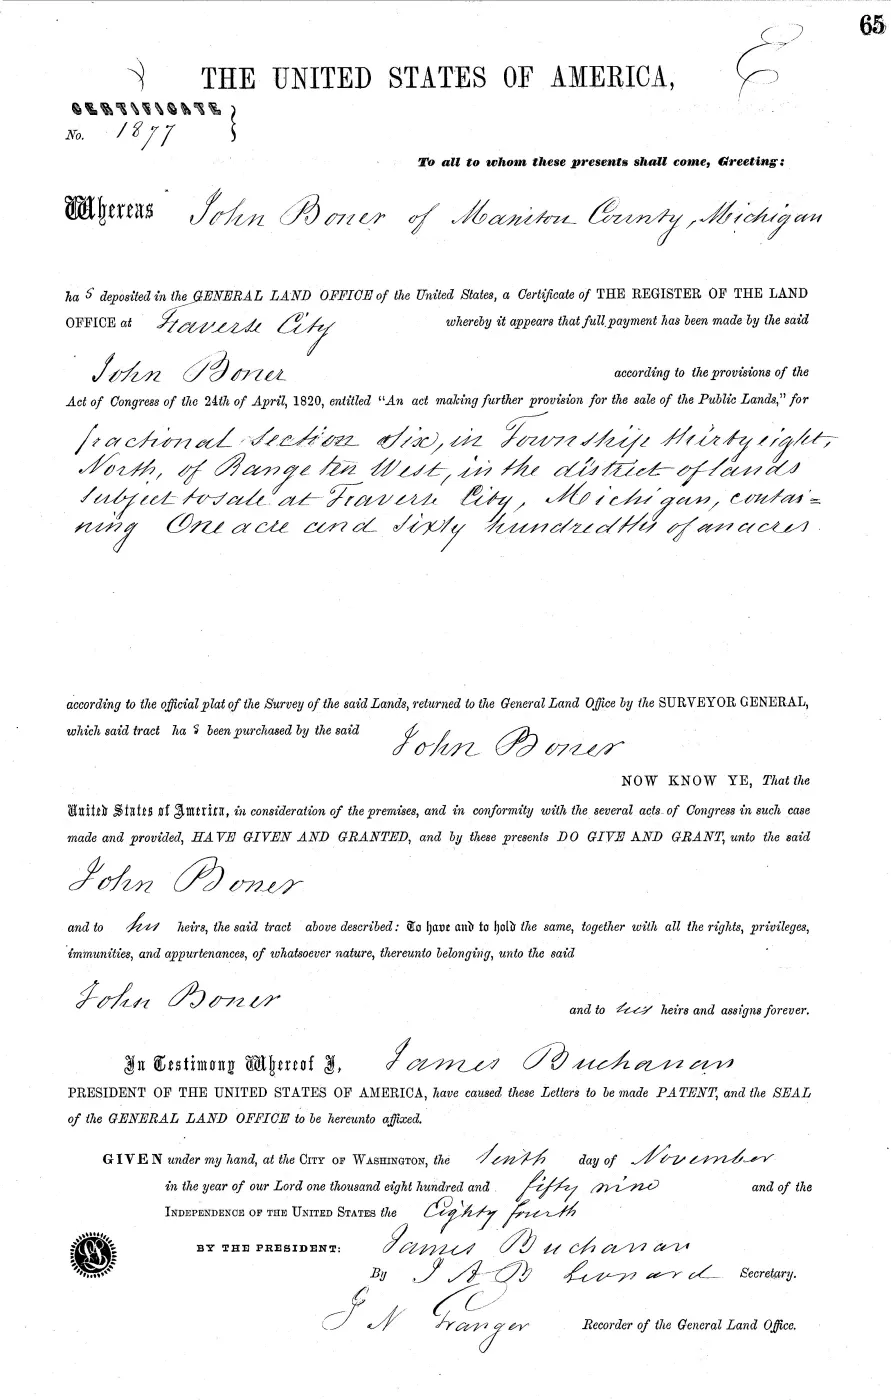 65
THE UNITED STATES OF AMERICA,
CERTIFICATE
No. 1877
To all to whom these presents shall come, Greeting:
Whereas John Boner of Maniton County, Michigan
ha s deposited in the GENERAL LAND OFFICE of the United States, a Certificate of THE REGISTER OF THE LAND
OFFICE at Traverse City whereby it appears that full payment has been made by the said
John Boner according to the provisions of the
Act of Congress of the 24th of April, 1820, entitled "An act making further provision for the sale of the Public Lands," for
fractional section six, in Township thirty eight,
North, of Range ten West, in the district of lands
subject to sale at Traverse City, Michigan, contai=
ning One acre and sixty hundredths of an acres
according to the official plat of the Survey of the said Lands, returned to the General Land Office by the SURVEYOR GENERAL,
which said tract ha s been purchased by the said John Boner
NOW KNOW YE, That the
United States of America, in consideration of the premises, and in conformity with the several acts of Congress in such case
made and provided, HAVE GIVEN AND GRANTED, and by these presents DO GIVE AND GRANT, unto the said
John Boner
and to his heirs, the said tract above described: To have and to hold the same, together with all the rights, privileges,
immunities, and appurtenances, of whatsoever nature, thereunto belonging, unto the said
John Boner and to his heirs and assigns forever.
In Testimony Whereof I, James Buchanan
PRESIDENT OF THE UNITED STATES OF AMERICA, have caused these Letters to be made PATENT, and the SEAL
of the GENERAL LAND OFFICE to be hereunto affixed.
GIVEN under my hand, at the CITY OF WASHINGTON, the tenth day of November
in the year of our Lord one thousand eight hundred and fifty nine and of the
INDEPENDENCE OF THE UNITED STATES the Eighty fourth
BY THE PRESIDENT: James Buchanan
By J A B Leonard Secretary.
J N Granger Recorder of the General Land Office.